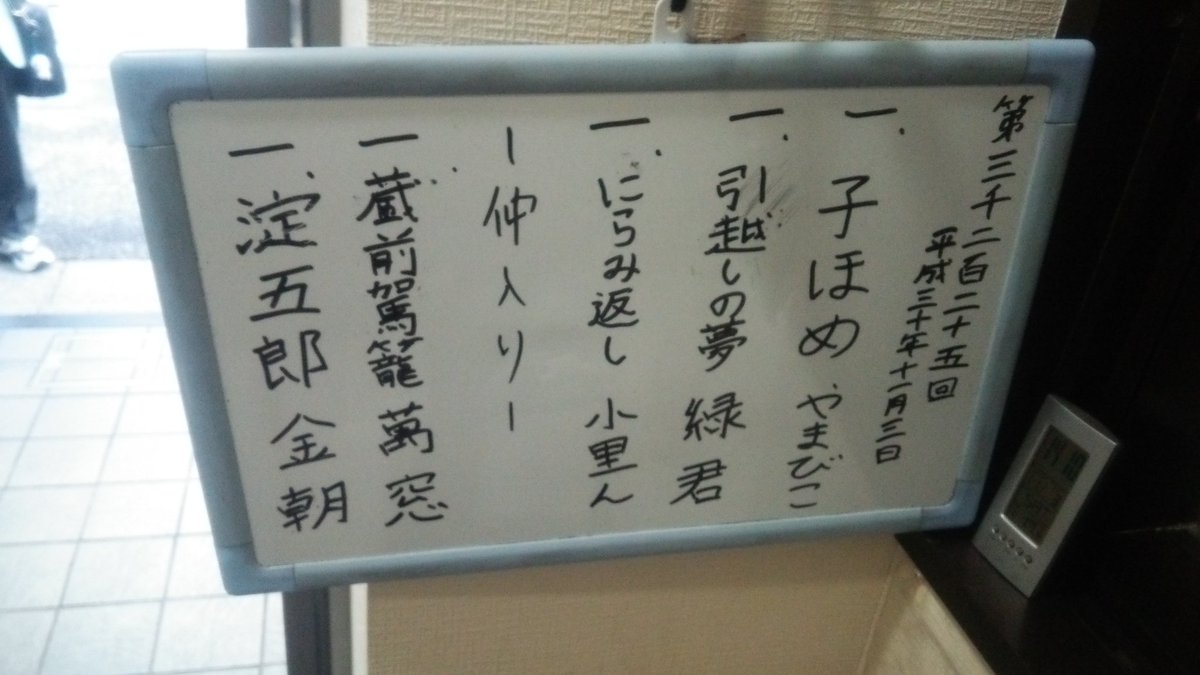 第三千二百二十五回
平成三十年十一月三日
一、子ほめ やまびこ
一、引越しの夢 緑君
一、にらみ返し 小里ん
ー仲入りー
一、蔵前駕籠 萬窓
一、淀五郎 金朝